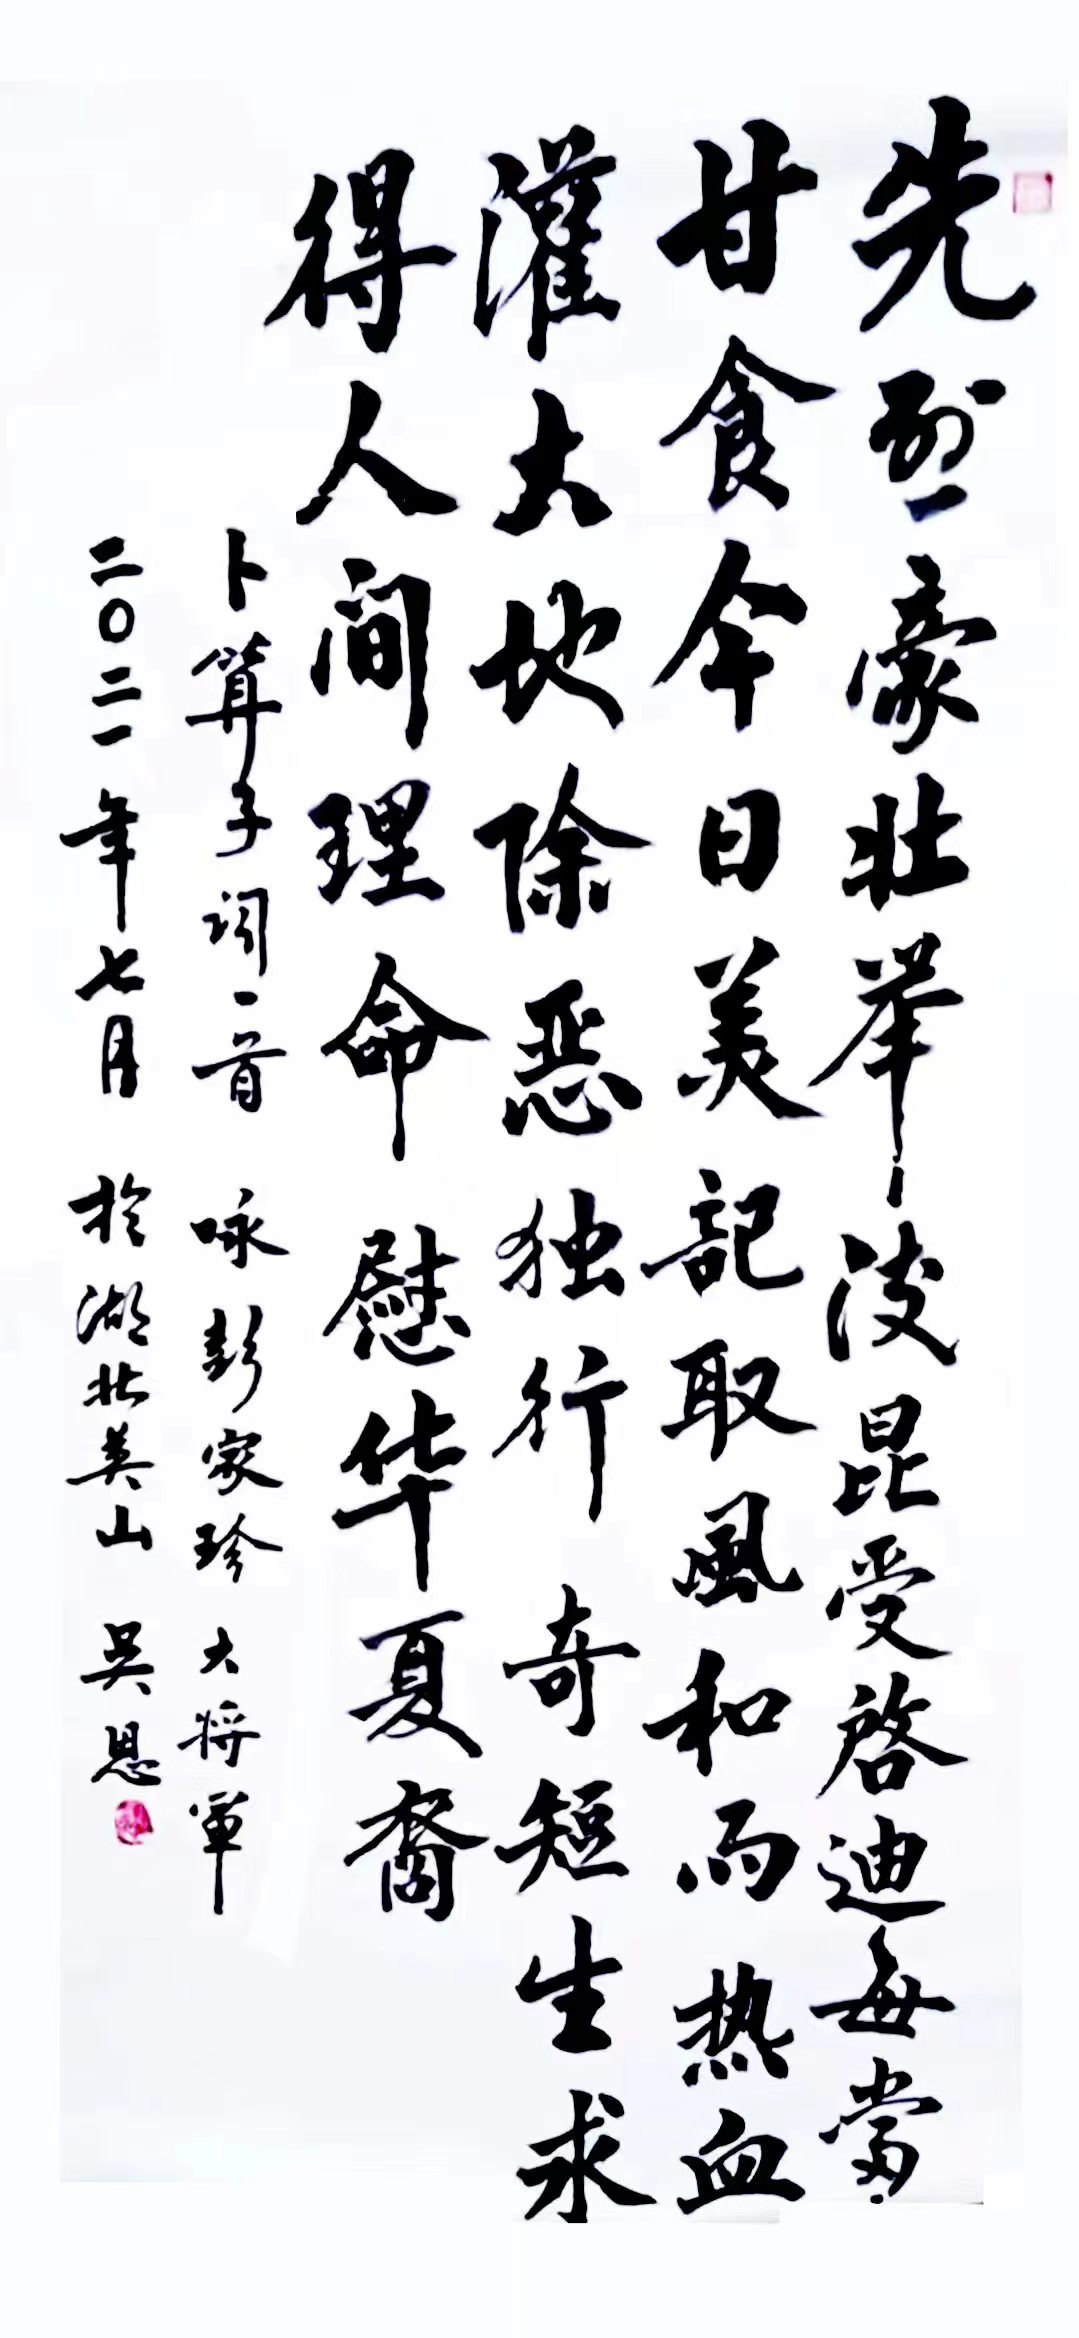 先烈豪壮举後昆受啓迪每當
甘食今日美記取風和雨热血
灌大地除恶独行奇短生求
得人间理命慰华夏裔
卜算子词一首 咏彭家珍大将軍
二〇二一年七月 於湖北英山 吴恩